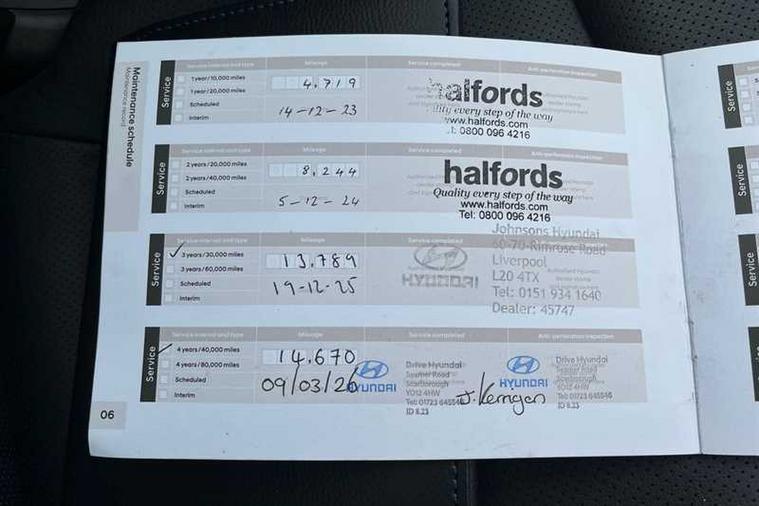 Maintenance schedule
Maintenance record
Service
Service interval and type
Mileage
Service completed
Anti-perforation inspection
1 year/10,000 miles
1 year/20,000 miles
Scheduled
Interim
4,719
14-12-23
halfords
Quality every step of the way
www.halfords.com
Tel: 0800 096 4216
Service
Service interval and type
Mileage
Service completed
Anti-perforation inspection
2 years/20,000 miles
2 years/40,000 miles
Scheduled
Interim
8,244
5-12-24
halfords
Quality every step of the way
www.halfords.com
Tel: 0800 096 4216
Service
Service interval and type
Mileage
Service completed
3 years/30,000 miles
3 years/60,000 miles
Scheduled
Interim
13,789
19-12-25
HYUNDAI
Johnsons Hyundai
60-70 Rimrose Road
Liverpool
L20 4TX
Tel: 0151 934 1640
Dealer: 45747
Service
Service interval and type
Mileage
Service completed
Anti-perforation inspection
4 years/40,000 miles
4 years/80,000 miles
Scheduled
Interim
14,670
09/03/26
HYUNDAI
Drive Hyundai
Seamer Road
Scarborough
YO12 4HW
Tel: 01723 645546
ID 8.23
HYUNDAI
Drive Hyundai
Seamer Road
Scarborough
YO12 4HW
Tel: 01723 645546
ID 8.23
06
Service
Service
Service